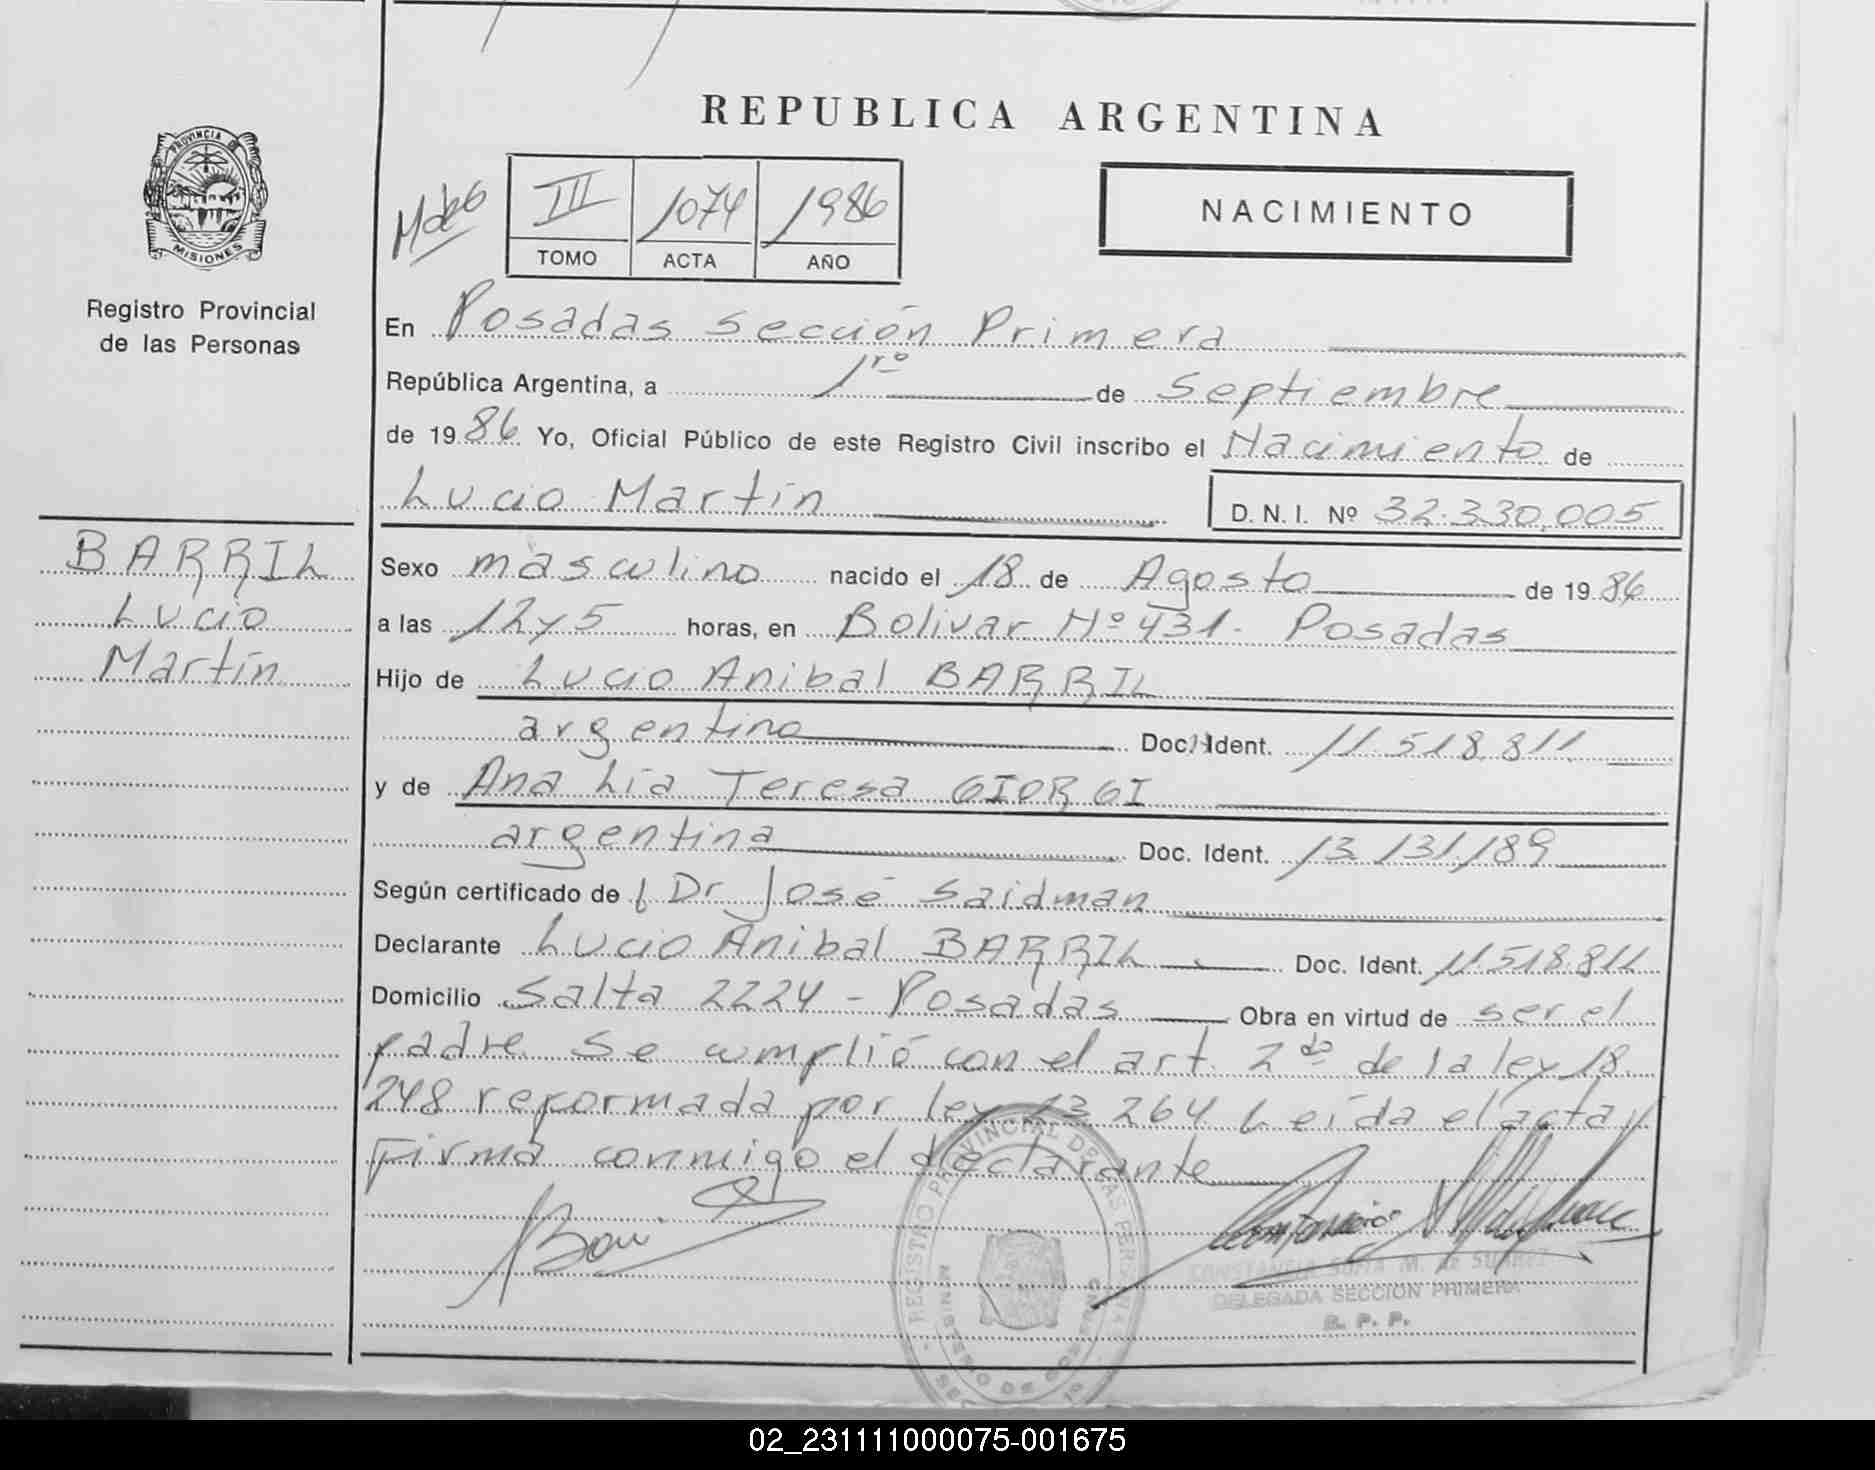 REPUBLICA ARGENTINA
PROVINCIA DE
MISIONES
Registro Provincial
de las Personas
III 1074 1986
TOMO ACTA AÑO
NACIMIENTO
En Posadas Sección Primera
República Argentina, a 1ro de Septiembre
de 1986 Yo, Oficial Público de este Registro Civil inscribo el Nacimiento de
Lucio Martín D. N. I. Nº 32.330.005
BARRIL
Lucio
Martín
Sexo masculino nacido el 18 de Agosto de 1986
a las 12 y 5 horas, en Bolivar Nº 431- Posadas
Hijo de Lucio Anibal BARRIL
argentino Doc. Ident. 11.518.811
y de Ana Lía Teresa GIORGI
argentina Doc. Ident. 13.131.189
Según certificado de Dr José Saidman
Declarante Lucio Anibal BARRIL Doc. Ident. 11.518.811
Domicilio Salta 2224 - Posadas Obra en virtud de ser el
padre. Se cumplió con el art. 2do de la ley 18.
248 reformada por ley 23.264. Leída el acta y
Firma conmigo el declarante
REGISTRO PROVINCIAL DE LAS PERSONAS
CONSTANCIA SOFIA M. de SUAREZ
DELEGADA SECCION PRIMERA
R. P. P.
02_231111000075-001675